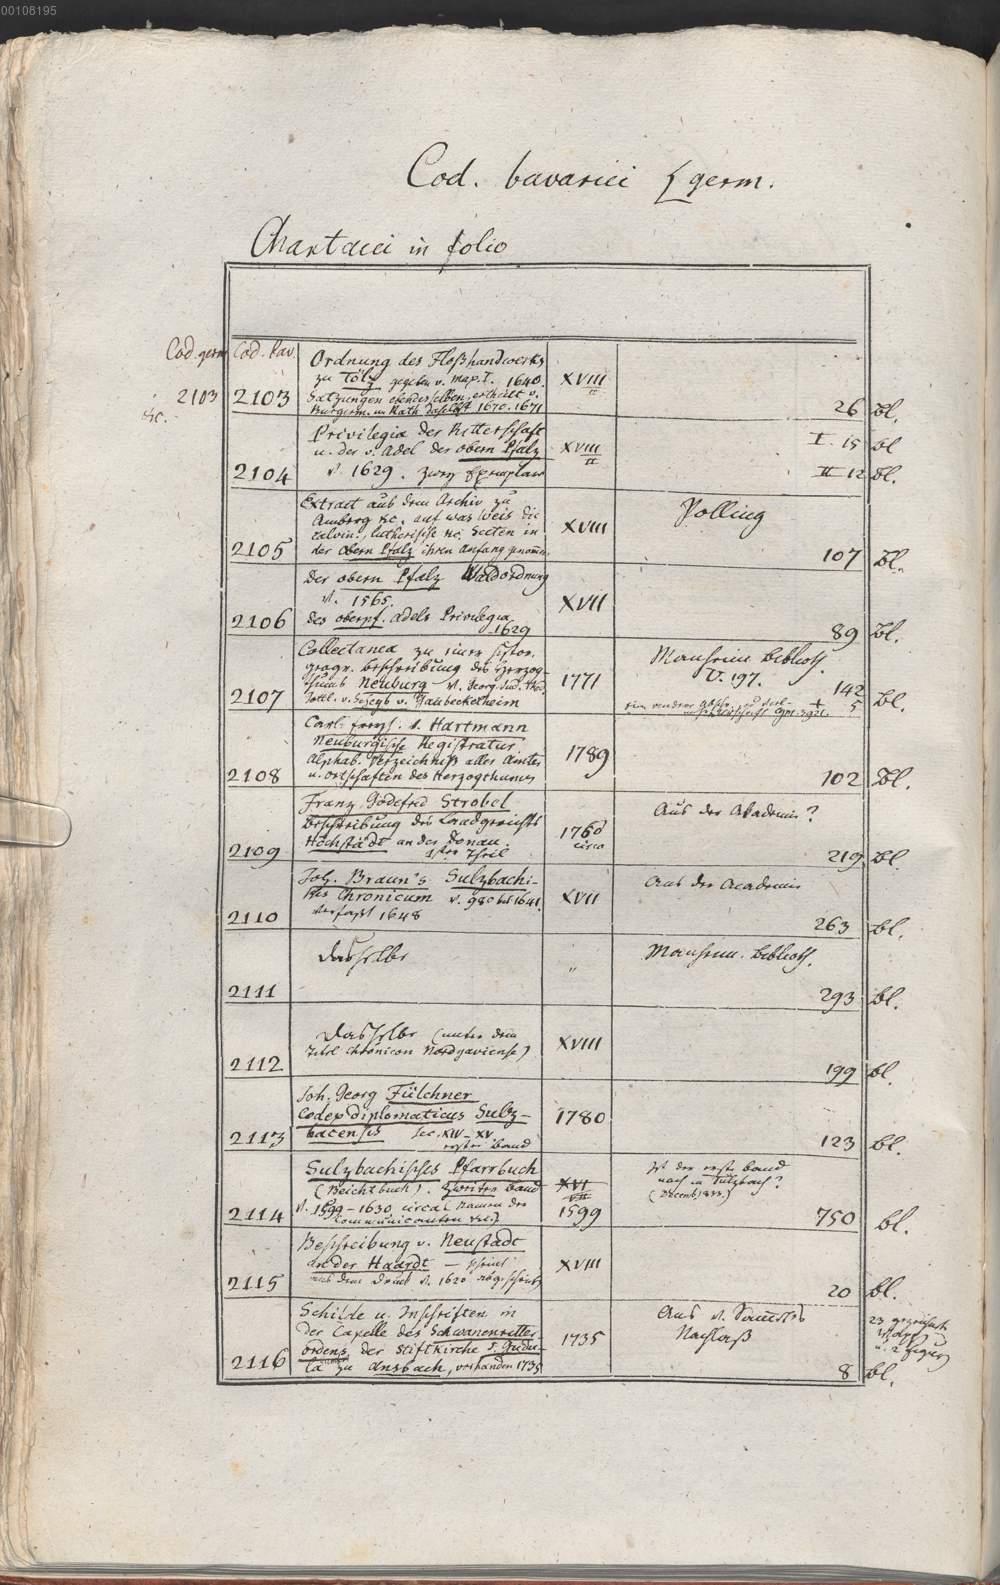 00108195
Cod. bavarici [germ.
Chartacei in folio
Cod. germ Cod. bav.
2103
&c.
Ordnung des Floßhandwerks
zu Tölz gegeben v. Max. I. 1640.
Satzungen ebendesselben, ertheilt v.
Burgerm. u. Rath daselbst 1670. 1671
2103
XVIII
II
26 Bl.
Privilegia der Ritterschaft
u. der v. Adel der obern Pfalz
v. 1629. zwey Exemplare
2104
XVIII
II
I. 15 Bl
II 12 Bl.
Extract aus dem Archiv zu
Amberg &c. auf was Weis die
calvin., lutherische &c. Secten in
der obern Pfalz ihren Anfang genommen
2105
XVIII
Polling
107 Bl.
Der obern Pfalz Waldordnung
v. 1565.
des oberpf. Adels Privilegia
1629
2106
XVII
89 Bl.
Collectanea zu einer histor.
geogr. Beschreibung des Herzog-
thums Neuburg v. Georg
v. Gaubeckelheim
2107
1771
Manheim. Biblioth.
V. 197.
142
+
5 Bl.
Carl v. Hartmann
Neuburgische Registratur.
Alphab. Verzeichniß aller Ämter
u. Ortschaften des Herzogthumes
2108
1789
102 Bl.
Franz Godefred Strobel
Beschreibung des Landgerichts
Höchstädt an der Donau.
1ster Theil
2109
1760
circa
Aus der Akademie?
219 Bl.
Joh. Braun's Sulzbachi-
sches Chronicum v. 980 bis 1641.
verfaßt 1648
2110
XVII
Aus der Academie
263 bl.
dasselbe
2111
"
Manheim. Biblioth.
293 bl.
dasselbe (unter dem
Titel Chronicon Nordgaviense)
2112
XVIII
199 bl.
Joh. Georg Fülchner
Codex diplomaticus Sulz-
bacensis sec. XIV - XV
erster Band
2113
1780
123 bl.
Sulzbachisches Pfarrbuch
(Beichtbuch). Zweiter Band
v. 1599 - 1630 circa (Namen der
Communicanten &c.)
2114
XVI
XVII
1599
Ist der erste Band
noch in Sulzbach?
(Decemb. 1833.)
750 bl.
Beschreibung v. Neustadt
an der Haardt — scheint
aus dem Druck v. 1620 abgeschrieben
2115
XVIII
20 bl.
Schilde u. Inschriften in
der Capelle des Schwanenritter-
ordens, der Stiftkirche S. Gudu-
la zu Ansbach, vorhanden 1735
2116
1735
Aus v.
Nachlaß
23 gezeichnete
Wappen
u. 2 Figuren
8 bl.